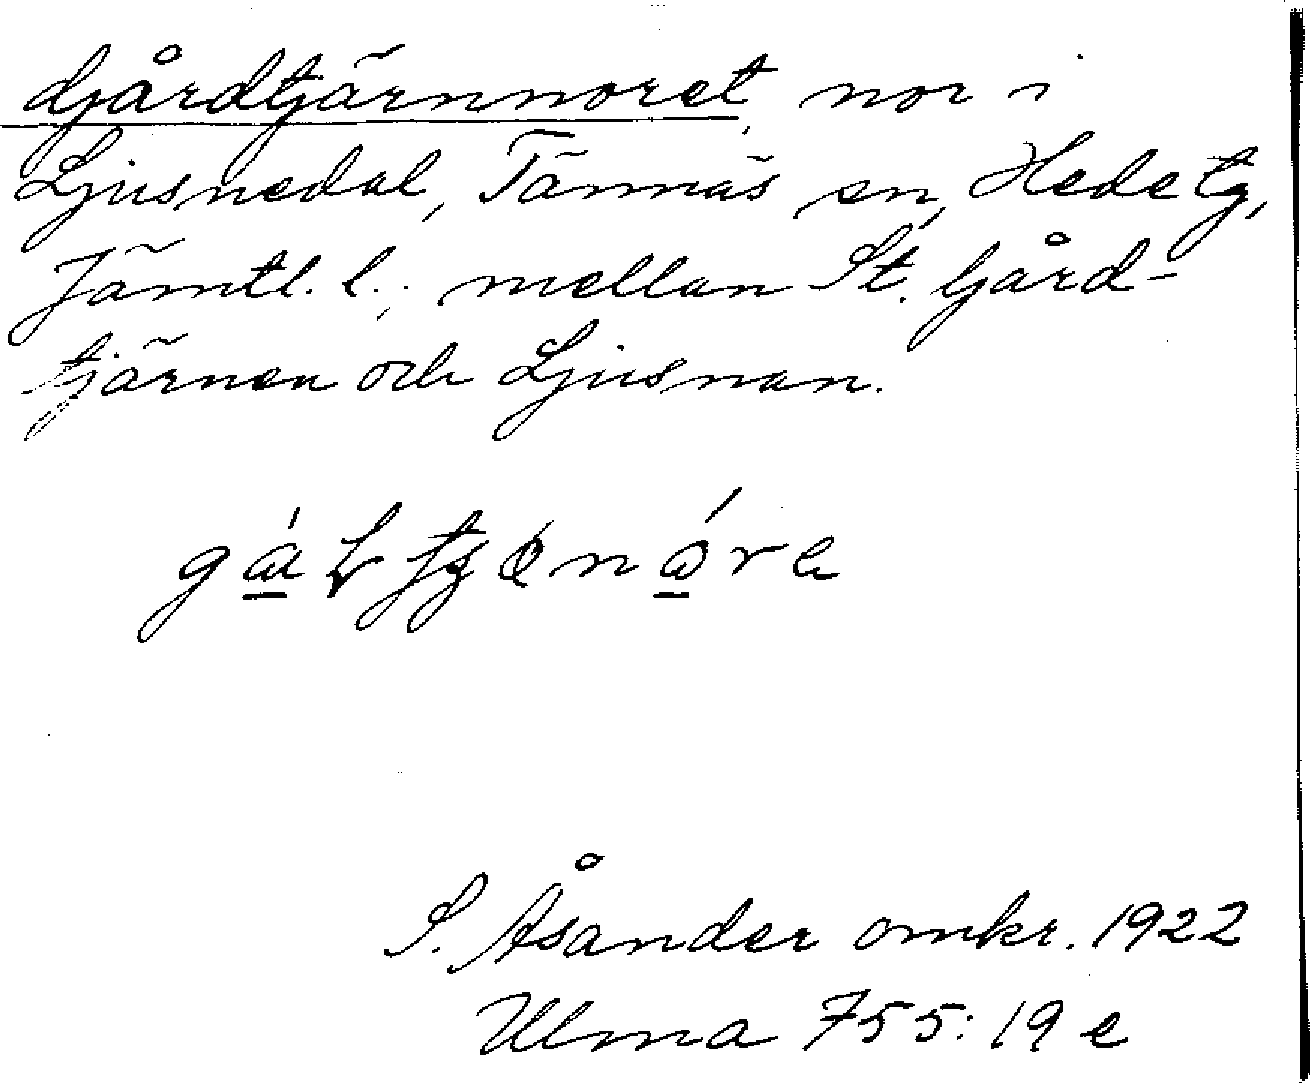 Gårdtjärnnoret, nor i
Ljusnedal, Tännäs sn, Hede tg,
Jämtl. l., mellan St. Gård-
tjärnen och Ljusnan.
S. Åsander omkr. 1922
Ulma 755:19 e